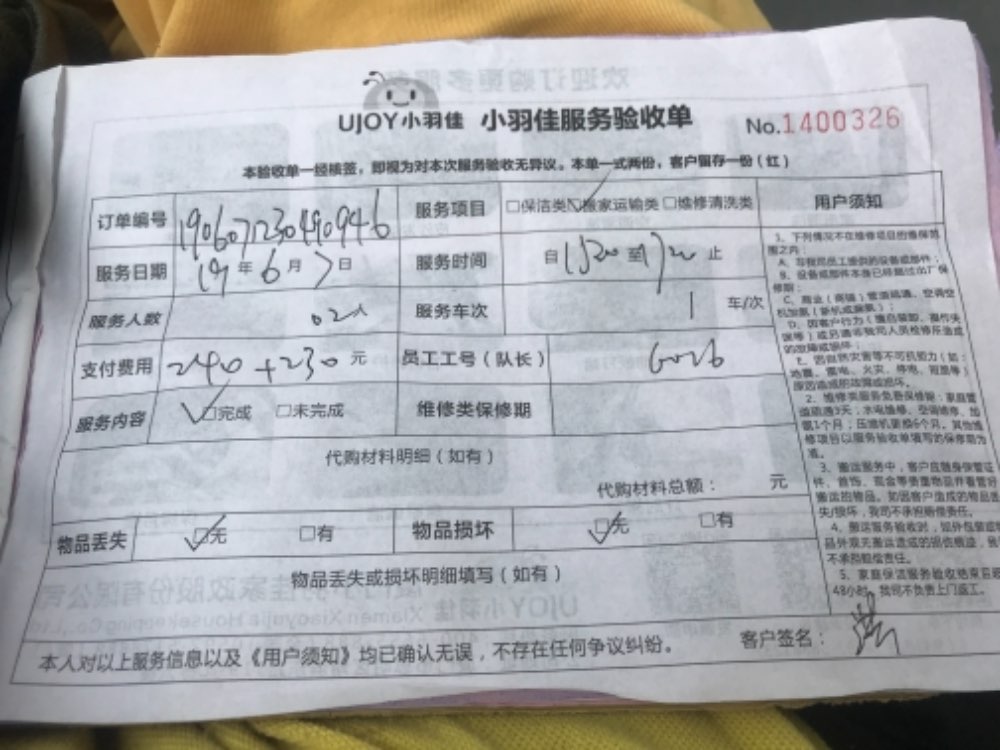 UJOY小羽佳 小羽佳服务验收单 No.1400326
本验收单一经核签，即视为对本次服务验收无异议。本单一式两份，客户留存一份（红）
订单编号 190607230490946 服务项目 □保洁类 ☑搬家运输类 □维修清洗类 用户须知
服务日期 19年6月7日 服务时间 自1520至1720止
服务人数 02人 服务车次 1 车/次
支付费用 240+230元 员工工号（队长） 6026
服务内容 ☑完成 □未完成 维修类保修期
代购材料明细（如有）
代购材料总额： 元
物品丢失 ☑无 □有 物品损坏 ☑无 □有
物品丢失或损坏明细填写（如有）
本人对以上服务信息以及《用户须知》均已确认无误，不存在任何争议纠纷。 客户签名：
1、下列情况不在维修项目的维保范
围之内：
A、非我司员工提供的设备或部件；
B、设备或部件本身已经超过出厂保
修期；
C、商业（商铺）管道疏通、空调空
D、因客户行为（擅自装卸、操作失
误等）或另请非我司人员检修所造成
的故障或损坏；
E、因自然灾害等不可抗能力（如：
地震、雷电、火灾、停电、短路等）
原因造成的故障或损坏。
2、维修类服务免费保修期：家庭管
道疏通3天，水电维修、空调维修、加
氨1个月，压缩机更换6个月。其他维
修项目以服务验收单填写的保修期为
准。
3、搬运服务中，客户应随身保管证
件、首饰、现金等贵重物品并看管好
搬运的物品。如因客户造成的物品丢
失/损坏，我司不承担赔偿责任。
4、搬运服务验收时，如外包装或
品外观无搬运造成的损伤痕迹，我
不承担赔偿责任。
5、家庭保洁服务验收结束后超
48小时，我司不负责上门返工。